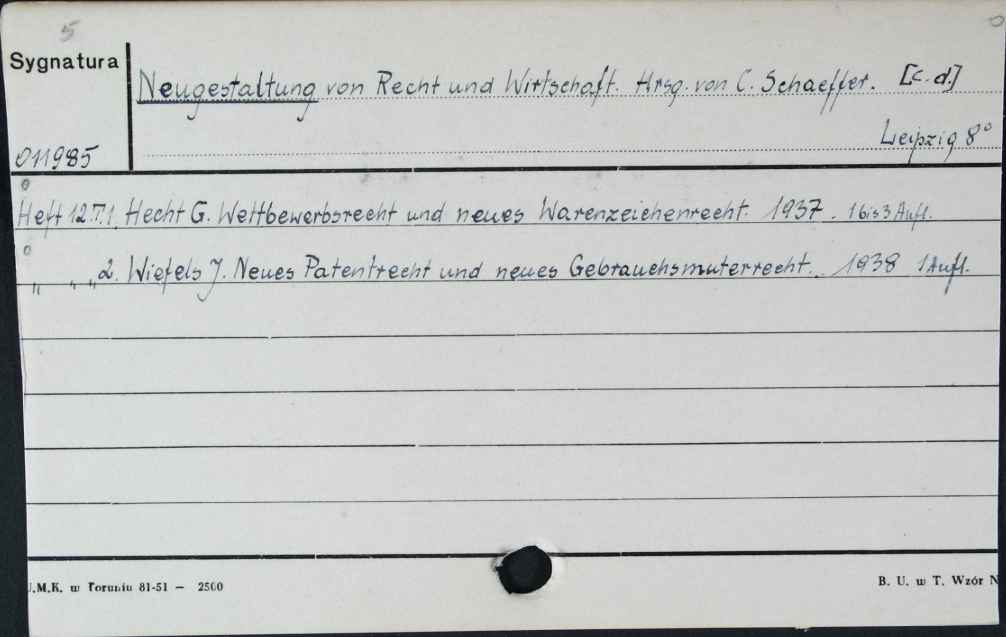 5
Sygnatura
Neugestaltung von Recht und Wirtschaft. Hrsg. von C. Schaeffer. [c.d.]
Leipzig 8°
011985
Heft 12.T.1. Hecht G. Wettbewerbsrecht und neues Warenzeichenrecht. 1937. 1 bis 3 Aufl.
" " " 2. Wiefels J. Neues Patentrecht und neues Gebrauchsmuterrecht. 1938 1 Aufl.
.M.K. w Toruniu 81-51 — 2500
B. U. w T. Wzór N